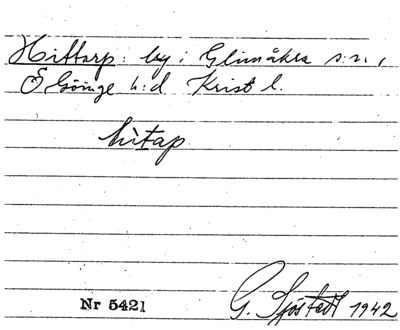 Hittarp: by i Glimåkra s:n,
Ö Göinge h:d Krist l.
hìtap
Nr 5421
G. Sjöstedt 1942